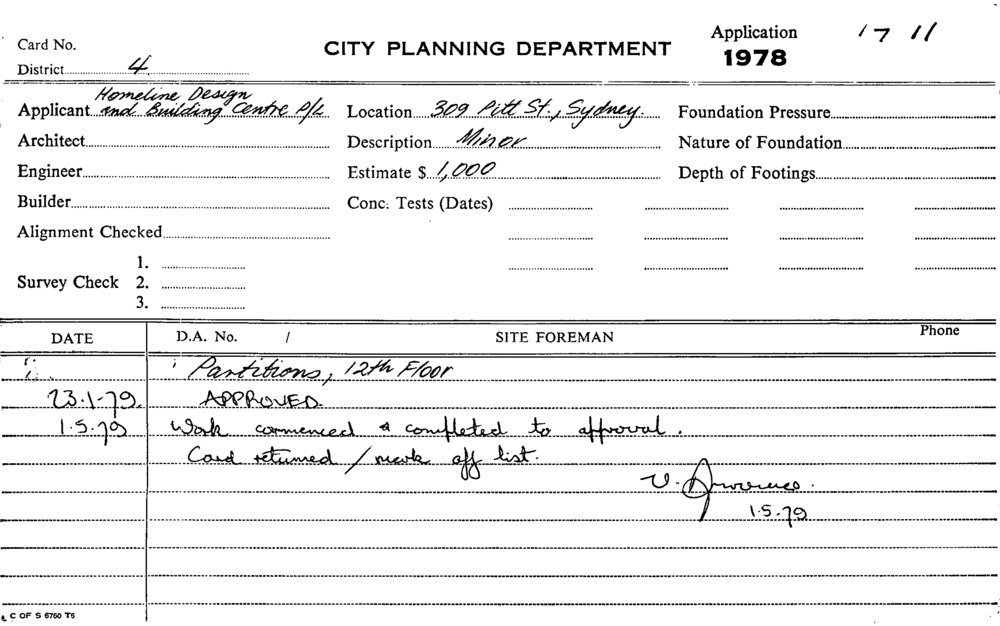 Card No.
CITY PLANNING DEPARTMENT
Application 17 11
1978
District 4
Applicant Homeline Design
and Building Centre P/L
Location 309 Pitt St., Sydney.
Foundation Pressure
Architect
Description Minor
Nature of Foundation
Engineer
Estimate $ 1,000
Depth of Footings
Builder
Conc. Tests (Dates)
Alignment Checked
Survey Check 1.
2.
3.
DATE D.A. No. / SITE FOREMAN Phone
Partitions, 12th Floor
23.1.79. APPROVED.
1.5.79 Work commenced & completed to approval.
Card returned / mark off list.
V.
1.5.79
C OF S 6760 T5